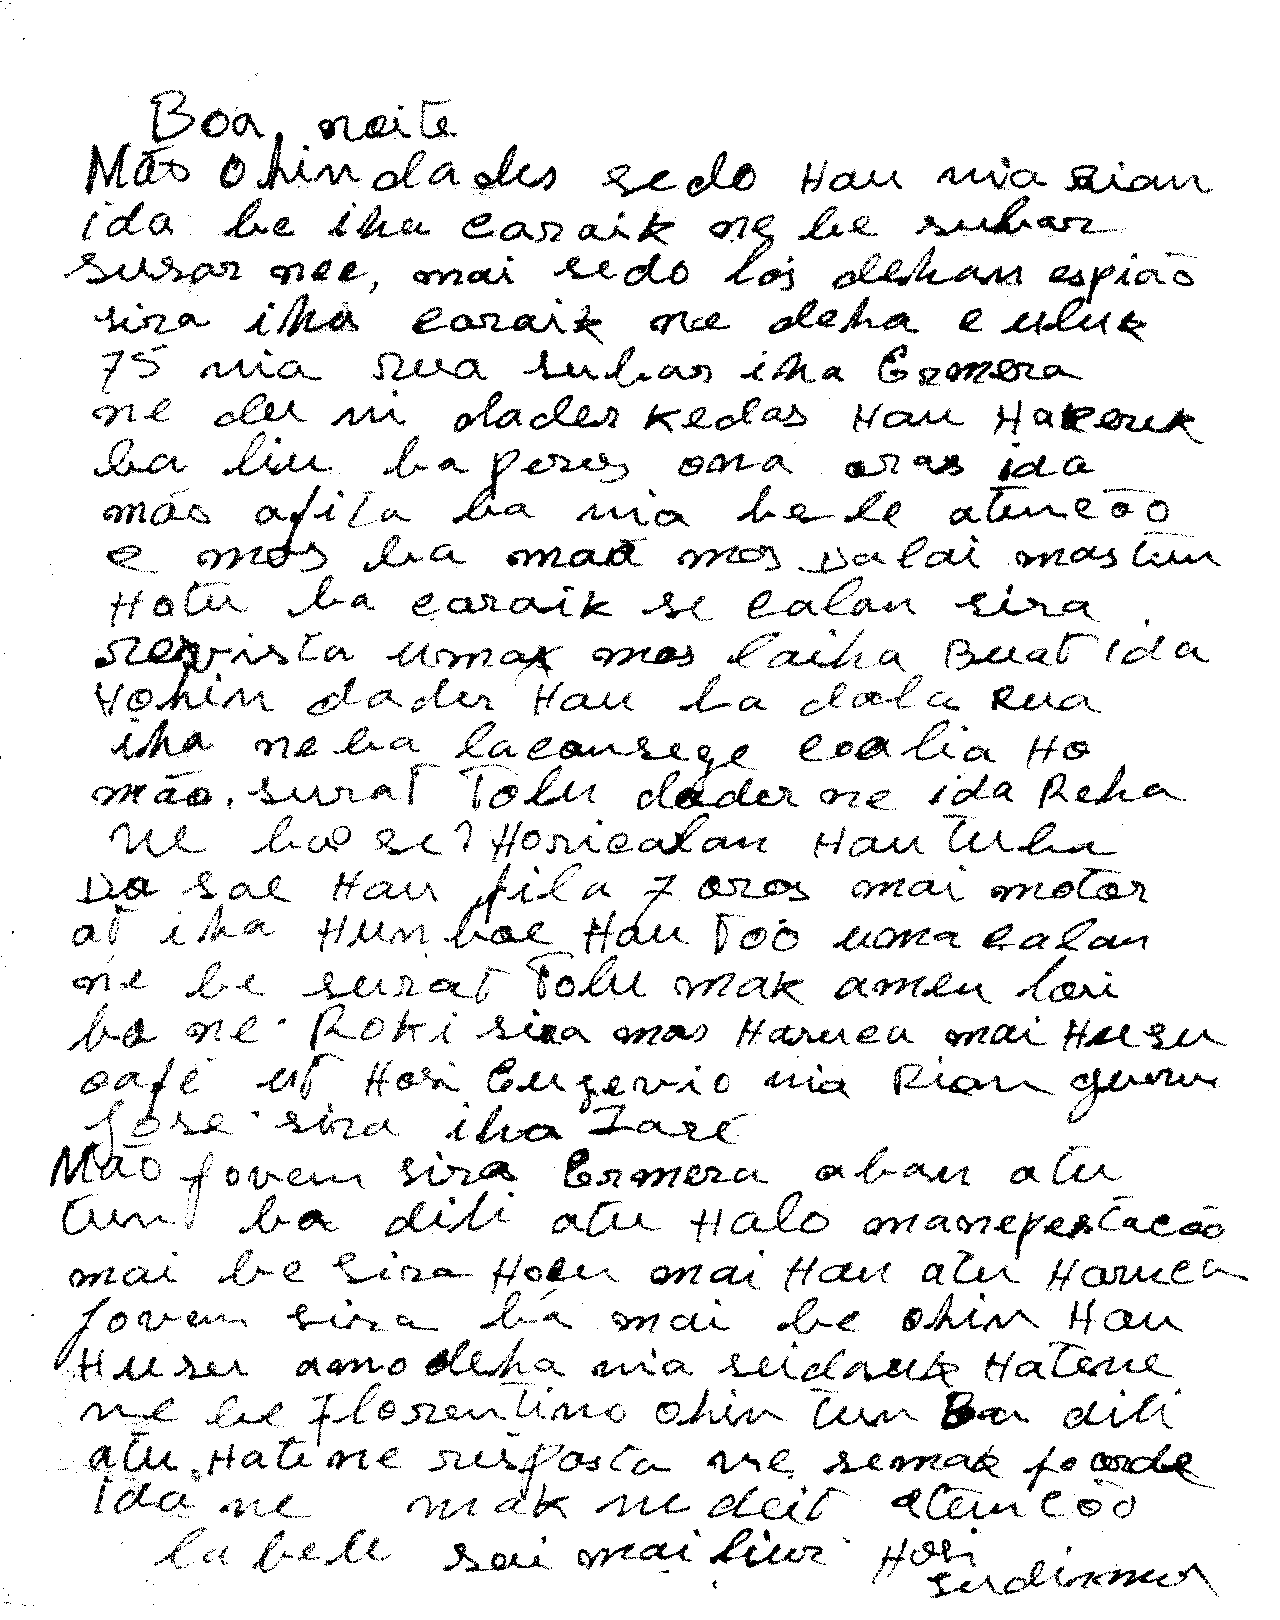 Boa, noite
Mão Ohin dades sedo Hau nia rian
ida be iha caraik ne be subar
susar nee, mai sedo los dehan espião
sira iha caraik ne deha e uluk
75 nia rua subar iha Ermera
ne du ni dader kedas Hau Hakeruk
ba liu ba peros ona oras ida
mão afila ba nia bele atencão
e mos ba maa mos Dalai mastun
Hotu ba caraik se calan sira
revista umak mos laiha Buat Ida
Hohin dader Hau ba dala Rua
iha neba laconsege coalia Ho
mão. surat Tolu dader ne ida Reha
ne ba se? Horicalan Hau tuba
Da sae Hau fila 7 oras mai motor
at iha Hun boe Hau Too uma calan
ne be surat Tolu mak ameu lori
ba ne. Roki sira mos Haruca mai Husu
café ut Hosi Eugevio nia Rian
Jose. sira iha Zare
Mão Jovem sira Ermera aban atu
tun ba dili atu Halo manefestacão
mai be sira Hocu mai Hau atu Haruca
Jovem sira bá mai be ohin Hau
Husu amo deha nia seidauk Hatene
ne be Florentino ohin tun Ba dili
atu Hatene risposta ne semak
ida ne mak ne deit atencão
la bele sai mai liur. Hosi